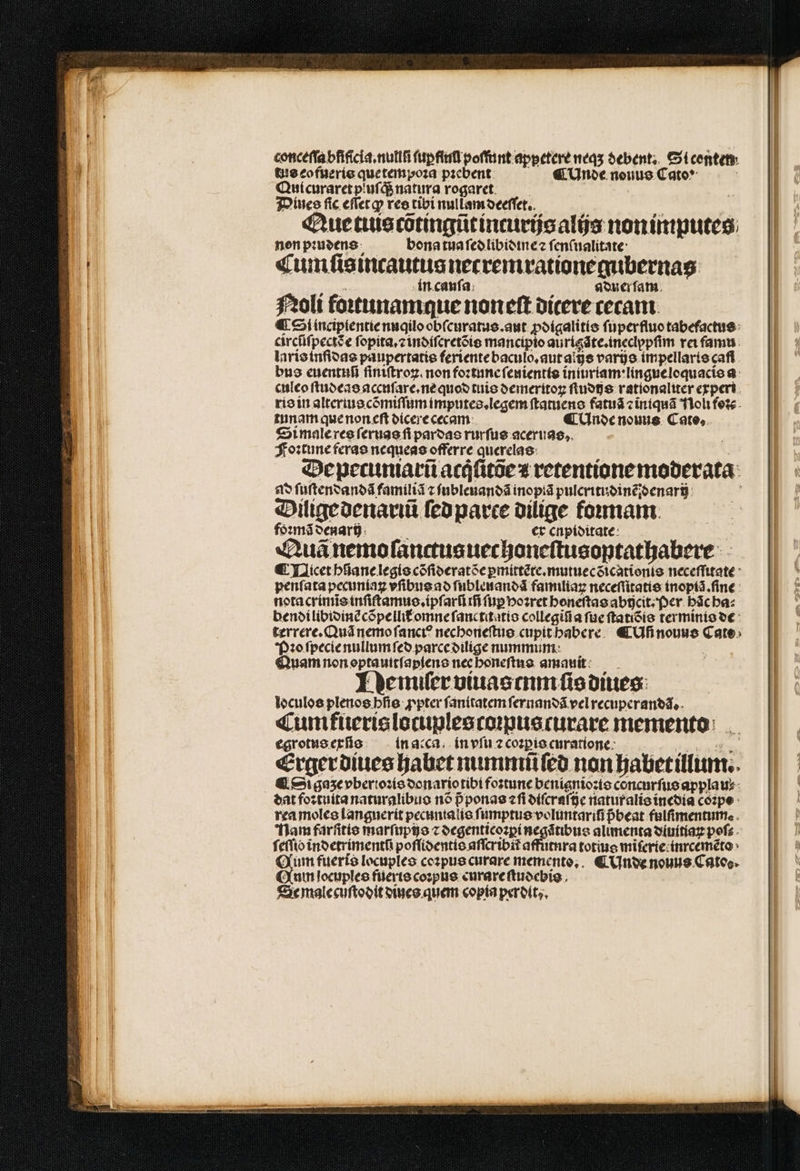 conceſſa bñficia. nullũ ſuꝑfluũ poſſunt appetere neqꝫ debent. Si conten⸗
tus eo fueris que tempoꝛa pꝛebent ¶ Unde nouus Cato
Qui curaret pluſqꝫ natura rogaret
Diues ſic eſſet ꝙ res tibi nullam deeſſet.
Que tuis cõtingũt incurijs alijs non imputes
non pꝛudens bona tua ſed libidine ⁊ ſenſualitate
Cum ſis incautus nec rem ratione gubernas
in cauſa aduerſam
Noli foꝛtunam que non eſt dicere cecam
¶ Si incipientie nuqilo obſcuratus. aut ꝓdigalitis ſuperfluo tabefactus
circũſpectẽe ſopita. ⁊ indiſcretõis mancipio aurigãte. in eclyppſim rei famu
laris inſidas paupertatis feriente baculo. aut alijs varijs impellaris caſi
bus euentuũ ſiniſtroꝝ. non foꝛtune ſeuientis iniuriam lingue loquacis a
culeo ſtudeas accuſare. ne quod tuis demeritoꝝ ſtudijs rationaliter experi
ris in alterius cõmiſſum imputes. legem ſtatuens fatuã ⁊ iniquã Noli foꝛ⸗
tunam que non eſt dicere cecam ¶ Unde nouus Cato.
Si male res ſeruas ſi pardas rurſus aceruas.
Foꝛtune feras nequeas offerre querelas
De pecuniarũ acq̃ſitõe ⁊ retentione moderata
ad ſuſtendandã familiã ⁊ ſubleuandã inopiã pulcritudinẽ denarij
Dilige denariũ ſed parce dilige foꝛmam
foꝛmã denarij ex cupiditate
Quã nemo ſanctus nec honeſtus optat habere
¶ Licet hũane legis cõſideratõe ꝑmittẽte. mutue cõicationis neceſſitate
penſata pecuniaꝝ vſibus ad ſubleuandã familiaꝝ neceſſitatis inopiã. ſine
nota crimĩs inſiſtamus. ipſarũ tñ ſuꝑ hoꝛret honeſtas abijcit. Per hãc ha⸗
bendi libidinẽ cõpellit̃ omne ſanctitatis collegiũ a ſue ſtatiõis terminis de
terrere. Quã nemo ſanctꝰ nec honeſtus cupit habere ¶ Uñ nouus Cato
Pꝛo ſpecie nullum ſed parce dilige nummum
Quam non optauit ſapiens nec honeſtus amauit
Ne miſer viuas cum ſis diues
loculos plenos hñs ꝓpter ſanitatem ſeruandã vel recuperandã.
Cum fueris locuples coꝛpus curare memento
egrotus exñs in acca. in vſu ⁊ coꝛpis curatione
Erger diues habet nummũ ſed non habet illum.
¶ Si gaze vberioꝛis donario tibi foꝛtune benignioꝛis concurſus applau⸗
dat foꝛtuita naturalibus nõ p̃ponas ⁊ ſi diſcraſije naturalis inedia coꝛpo
rea moles languerit pecunialis ſumptus voluntariũ p̃beat fulſimentum.
Nam farſitis marſupijs ⁊ degenti coꝛpi negãtibus alimenta diuitiaꝝ poſ⸗
ſeſſio in detrimentũ poſſidentis aſſcribit̃ affutura totius miſerie. inrcemẽto
Qum fueris locuples coꝛpus curare memento. ¶ Unde nouus Cato.
Qum locuples fueris coꝛpus curare ſtudebis.
Se male cuſtodit diues quem copia perdit.